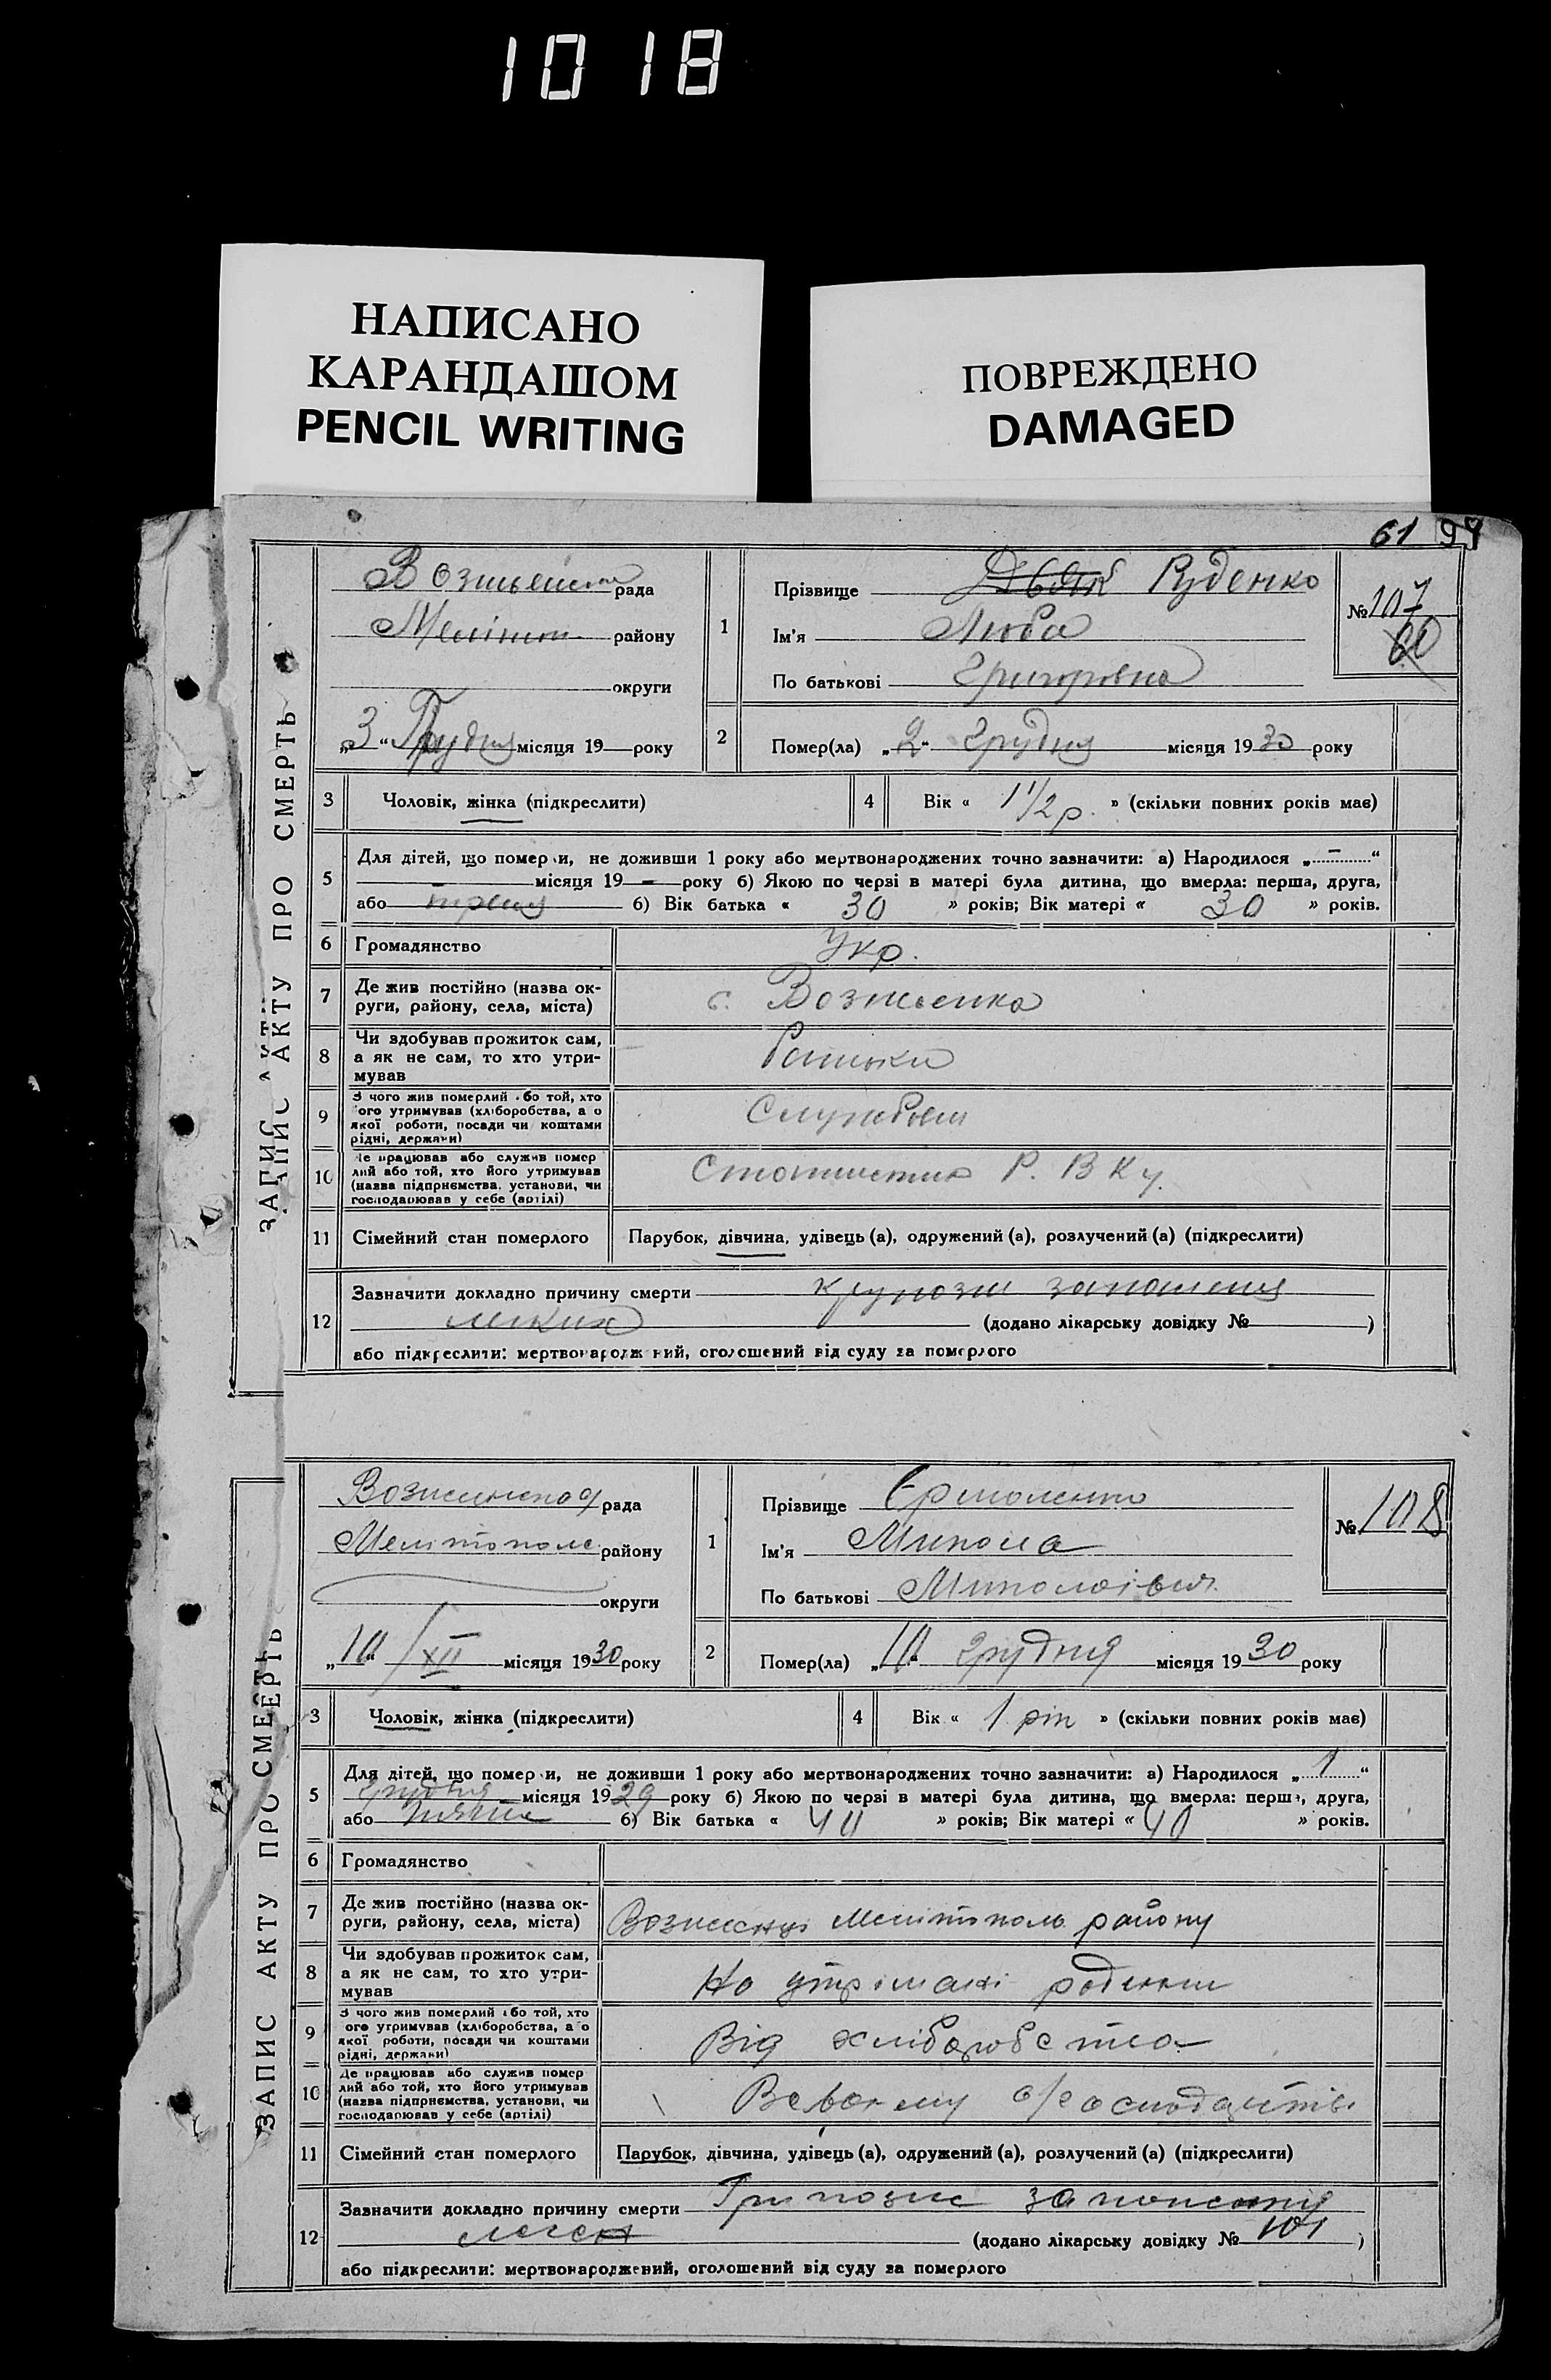 1018
НАПИСАНО
КАРАНДАШОМ
PENCIL WRITING
ПОВРЕЖДЕНО
DAMAGED
61 94
ЗАПИС АКТУ ПРО СМЕРТЬ
рада
Меліт. району
округи
„3“ Грудня місяця 19 року
1
Прізвище Руденко
Ім'я Люба
По батькові Григоровна
№ 107
60
2
Помер(ла) „2“ Грудня місяця 1930 року
3 Чоловік, жінка (підкреслити)
4 Вік « 1 1/2 р. » (скільки повних років має)
5 Для дітей, що померли, не доживши 1 року або мертвонароджених точно зазначити: а) Народилося „ – “
місяця 19 — року б) Якою по черзі в матері була дитина, що вмерла: перша, друга,
або третя б) Вік батька « 30 » років; Вік матері « 30 » років.
6 Громадянство Укр.
7 Де жив постійно (назва ок-
руги, району, села, міста) с. Вознесенка
8 Чи здобував прожиток сам,
а як не сам, то хто утри-
мував Батьки
9 З чого жив померлий або той, хто
ого утримував (хліборобства, а о
якої роботи, посади чи коштами
рідні, держави)
10 Де працював або служив помер
лий або той, хто його утримував
(назва підприємства, установи, чи
господарював у себе (артілі) Р. В К у.
11 Сімейний стан померлого Парубок, дівчина, удівець (а), одружений (а), розлучений (а) (підкреслити)
12 Зазначити докладно причину смерти крупозне запалення
легких (додано лікарську довідку № )
або підкреслити: мертвонароджений, оголошений від суду за померлого
ЗАПИС АКТУ ПРО СМЕРТЬ
рада
Мелітополь району
округи
„10“ / XII місяця 1930 року
1
Прізвище Єрмоленко
Ім'я Микола
По батькові Миколаівич
№ 108
2
Помер(ла) „10“ Грудня місяця 1930 року
3 Чоловік, жінка (підкреслити)
4 Вік « 1 рік » (скільки повних років має)
5 Для дітей, що померли, не доживши 1 року або мертвонароджених точно зазначити: а) Народилося „ 1 “
грудня місяця 1929 року б) Якою по черзі в матері була дитина, що вмерла: перша, друга,
або пята б) Вік батька « 40 » років; Вік матері « 40 » років.
6 Громадянство
7 Де жив постійно (назва ок-
руги, району, села, міста) Мелітополь району
8 Чи здобував прожиток сам,
а як не сам, то хто утри-
мував На утрімані
9 З чого жив померлий або той, хто
ого утримував (хліборобства, а о
якої роботи, посади чи коштами
рідні, держави) Від хліборобства
10 Де працював або служив помер
лий або той, хто його утримував
(назва підприємства, установи, чи
господарював у себе (артілі)
11 Сімейний стан померлого Парубок, дівчина, удівець (а), одружений (а), розлучений (а) (підкреслити)
12 Зазначити докладно причину смерти запаление
леген (додано лікарську довідку № 101 )
або підкреслити: мертвонароджений, оголошений від суду за померлого